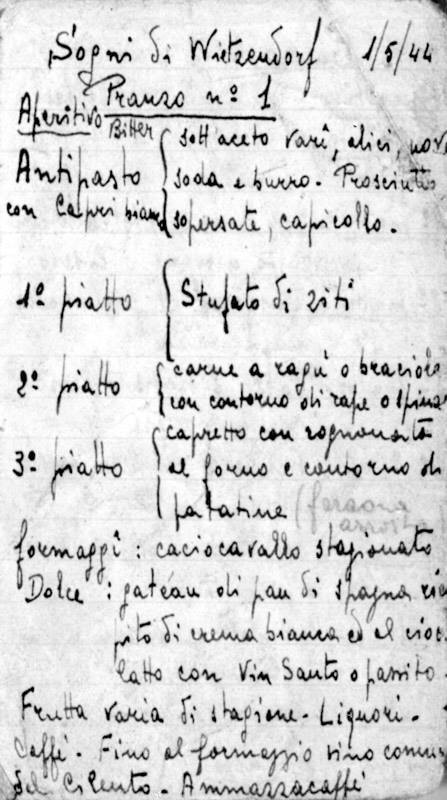 Sogni di Wietzendorf 1/5/44
Pranzo nº 1
Aperitivo Bitter
sott'aceto varî, alici, nov
Antipasto soda e burro. Prosciutto
con Capri bianco sopersate, capicollo.
1º piatto Stufato di ziti
carne a ragù o braciole
2º piatto con contorno di rape o spina
capretto con rognonata
3º piatto al forno e contorno di
patatine (faraona
arrosto
formaggî : caciocavallo stagionato
Dolce : gateau di pan di spagna riem
pito di crema bianca ed al cioc
latto con Vin Santo o passito.
Frutta varia di stagione. Liquori.
Caffè. Fino al formaggio vino comune
del Cilento. Ammazzacaffè